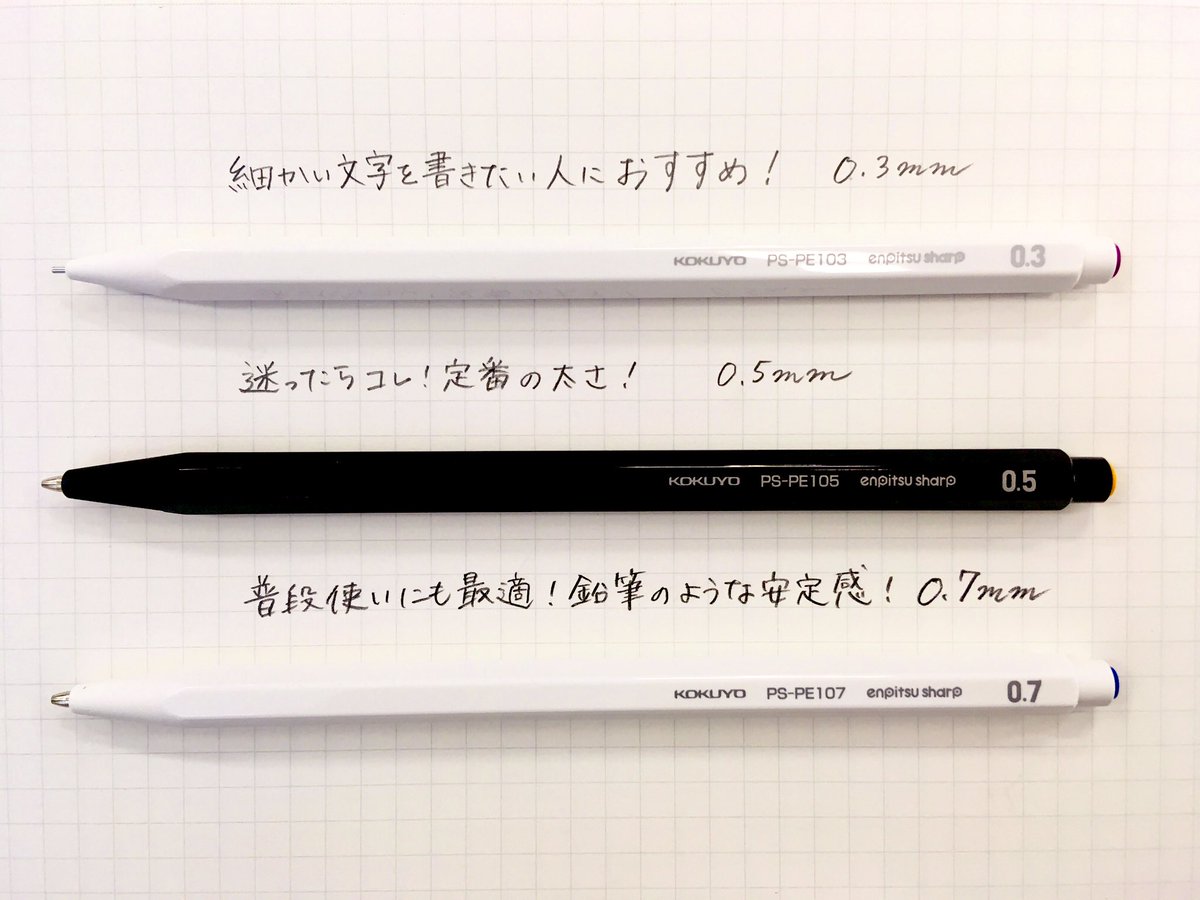 細かい文字を書きたい人におすすめ！ 0.3mm
KOKUYO PS-PE103 enpitsu sharp 0.3
迷ったらコレ！定番の太さ！ 0.5mm
KOKUYO PS-PE105 enpitsu sharp 0.5
普段使いにも最適！鉛筆のような安定感！ 0.7mm
KOKUYO PS-PE107 enpitsu sharp 0.7